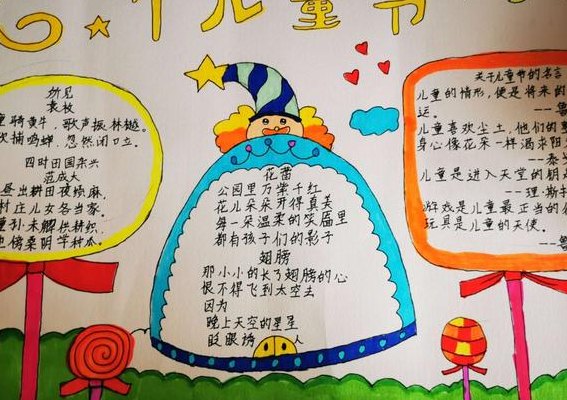 个儿童节
所见
袁枚
骑黄牛，歌声振林樾。
捕鸣蝉，忽然闭口立。
四时田园杂兴
范成大
昼出耕田夜绩麻，
村庄儿女各当家。
童孙未解供耕织，
也傍桑阴学种瓜。
花蕾
公园里万紫千红
花儿朵朵开得真美
每一朵温柔的笑靥里
都有孩子们的影子
翅膀
那小小的长了翅膀的心
恨不得飞到太空去
因为
晚上天空的星星
眨眼诱人
关于儿童节的名言
儿童的情形，便是将来的
运。
儿童喜欢尘土，他们的
身心像花朵一样渴求阳
儿童是进入天堂的钥
--理·斯
游戏是儿童最正当的
玩具是儿童的天使。
--鲁